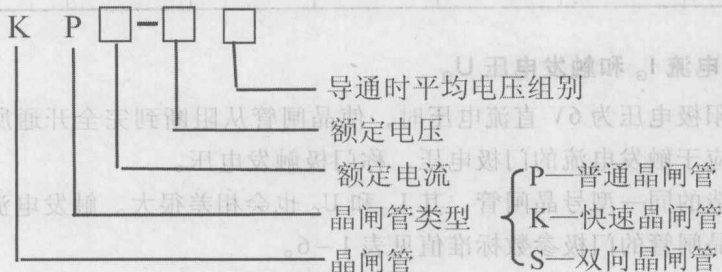 K P□-□ □
导通时平均电压组别
额定电压
额定电流
晶闸管类型
晶闸管
P—普通晶闸管
K—快速晶闸管
S—双向晶闸管